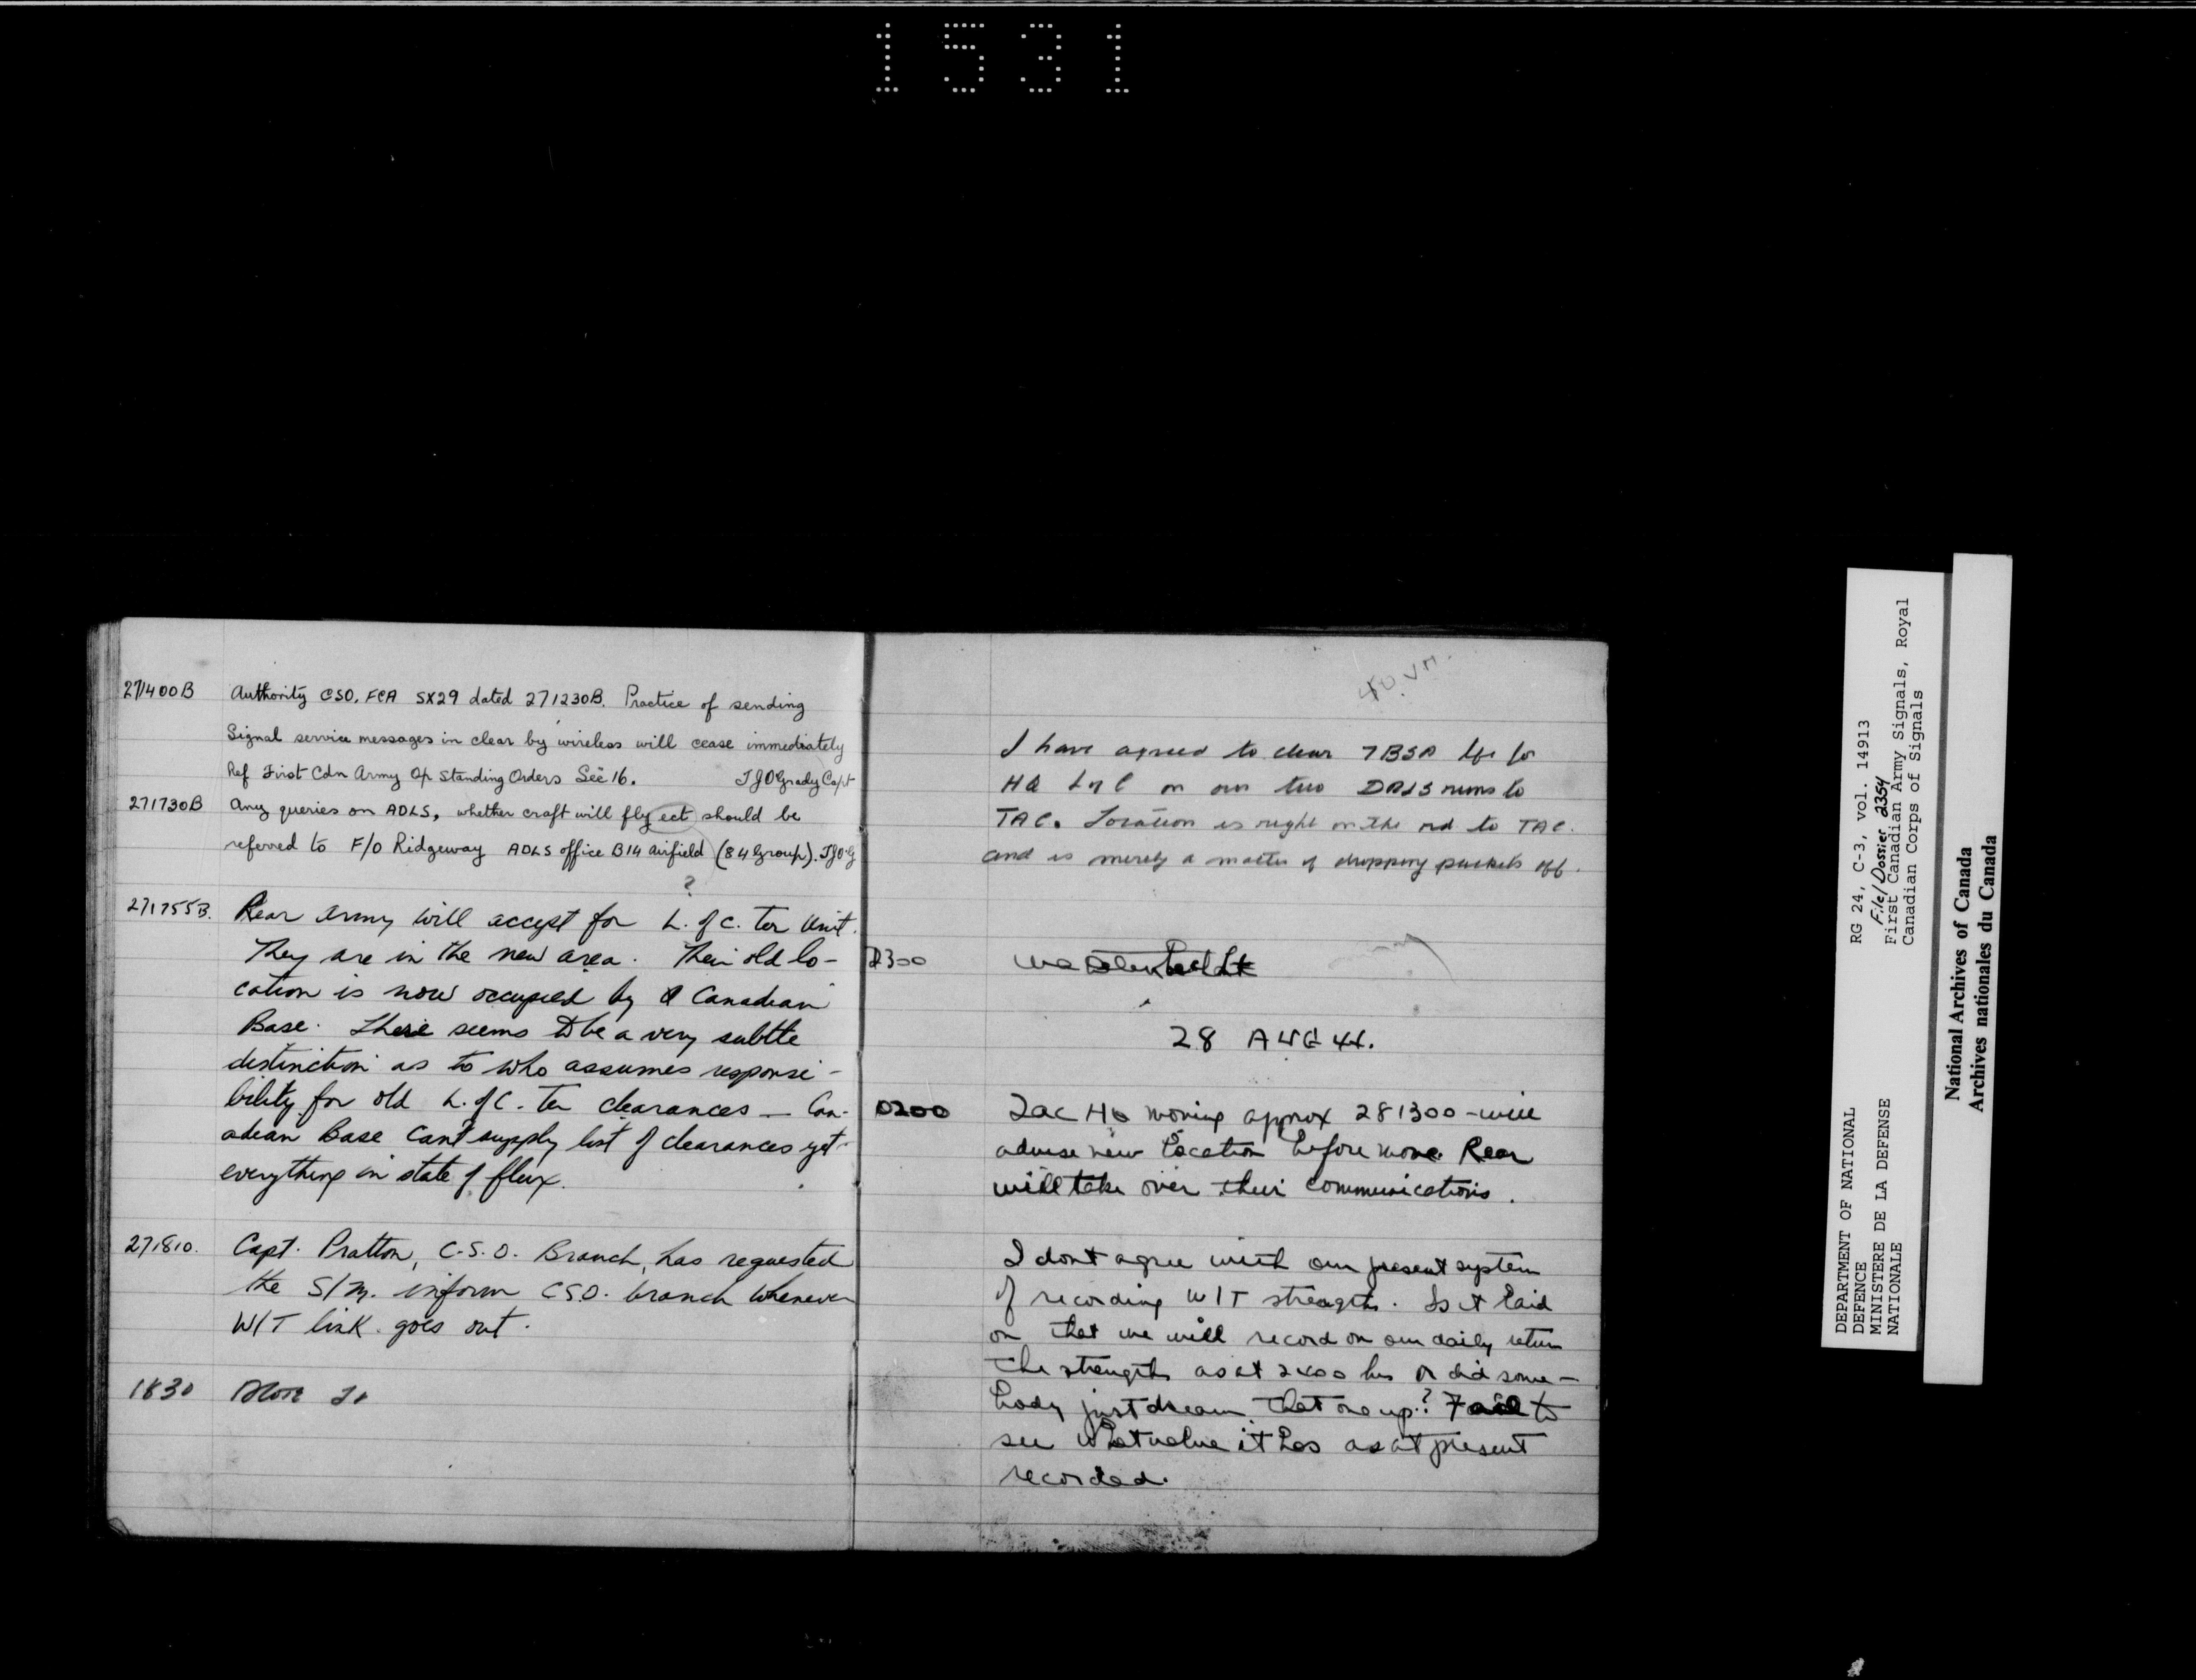 1531
271400B Authority CSO. FCA SX29 dated 271230B. Practice of sending
Signal service messages in clear by wireless will cease immediately
Ref First Cdn Army Op Standing Orders Sec 16. TJOGrady Capt
271730B Any queries on ADLS, whether craft will fly ect should be
referred to F/O Ridgeway ADLS office B14 airfield (84 Group). TJO'G
?
271755B. Rear Army will accept for L. of C. Ter Unit.
They are in the new area. Their old lo-
cation is now occupied by Canadian
Base. There seems to be a very subtle
distinction as to who assumes responsi-
bility for old L. of C. Ter clearances — Can-
adian Base can't supply list of clearances yet
everything in state of flux.
271810. Capt. Pratton, C.S.O. Branch, has requested
the S/M. inform C.S.O. branch whenever
W/T link goes out.
1830
I have agreed to clear 7 BSD for
HQ L of C on our two DRLS runs to
TAC. Location is right on the rd to TAC.
and is merely a matter of dropping packets off.
2300
28 AUG 44.
0200 Tac HQ moving approx 281300 - will
advise new location before move. Rear
will take over their communications.
I dont agree with our present system
of recording W/T strengths. Is it laid
on that we will record on our daily return
the strengths as at 2400 hrs or did some-
body just dream that one up? Fail to
see what value it has as at present
recorded.
DEPARTMENT OF NATIONAL
DEFENCE
MINISTERE DE LA DEFENSE
NATIONALE
RG 24, C-3, vol. 14913
File/Dossier 2354
First Canadian Army Signals, Royal
Canadian Corps of Signals
National Archives of Canada
Archives nationales du Canada